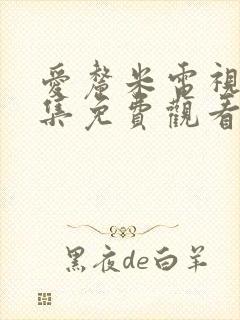 愛釐米電視
集免費觀看
黑夜de白羊